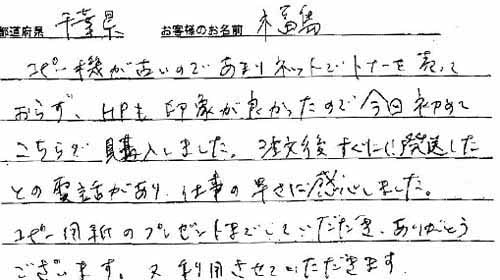 都道府県 千葉県 お客様のお名前 福島
コピー機が古いのであまりネットでトナーを売って
おらず、HPも印象が良かったので今回初めて
こちらで購入しました。注文後すぐに発送した
との電話があり、仕事の早さに感心しました。
コピー用紙のプレゼントまでしていただき、ありがとう
ございます。又利用させていただきます